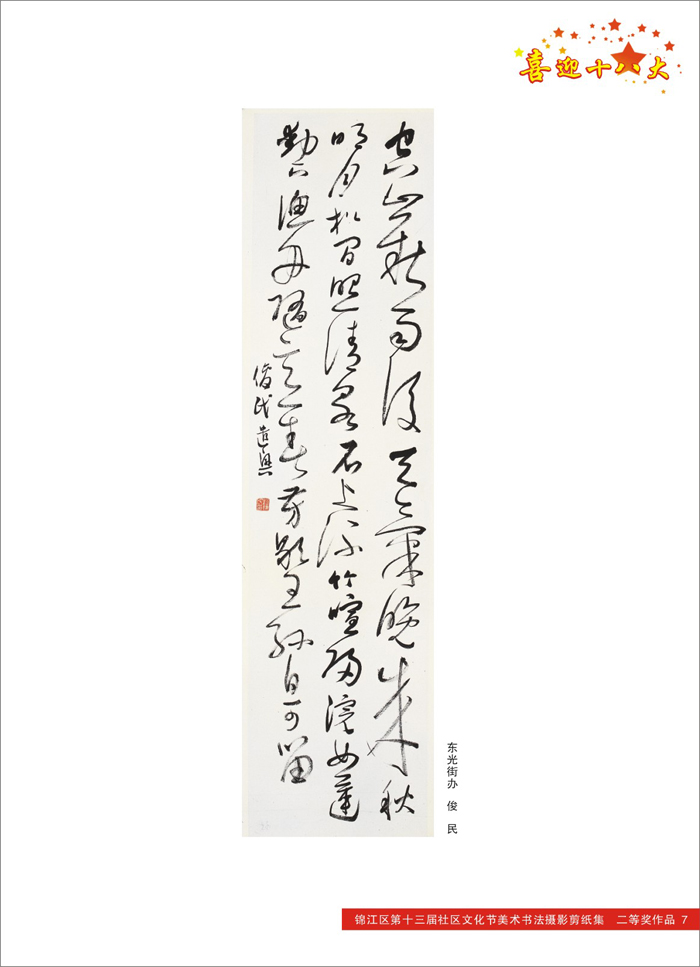 喜迎十八大
空山新雨後天氣晚来秋
明月松間照清泉石上流竹喧歸浣女蓮
動下漁舟隨意春芳歇王孫自可留
俊民遣興
东光街办 俊 民
锦江区第十三届社区文化节美术书法摄影剪纸集 二等奖作品 7